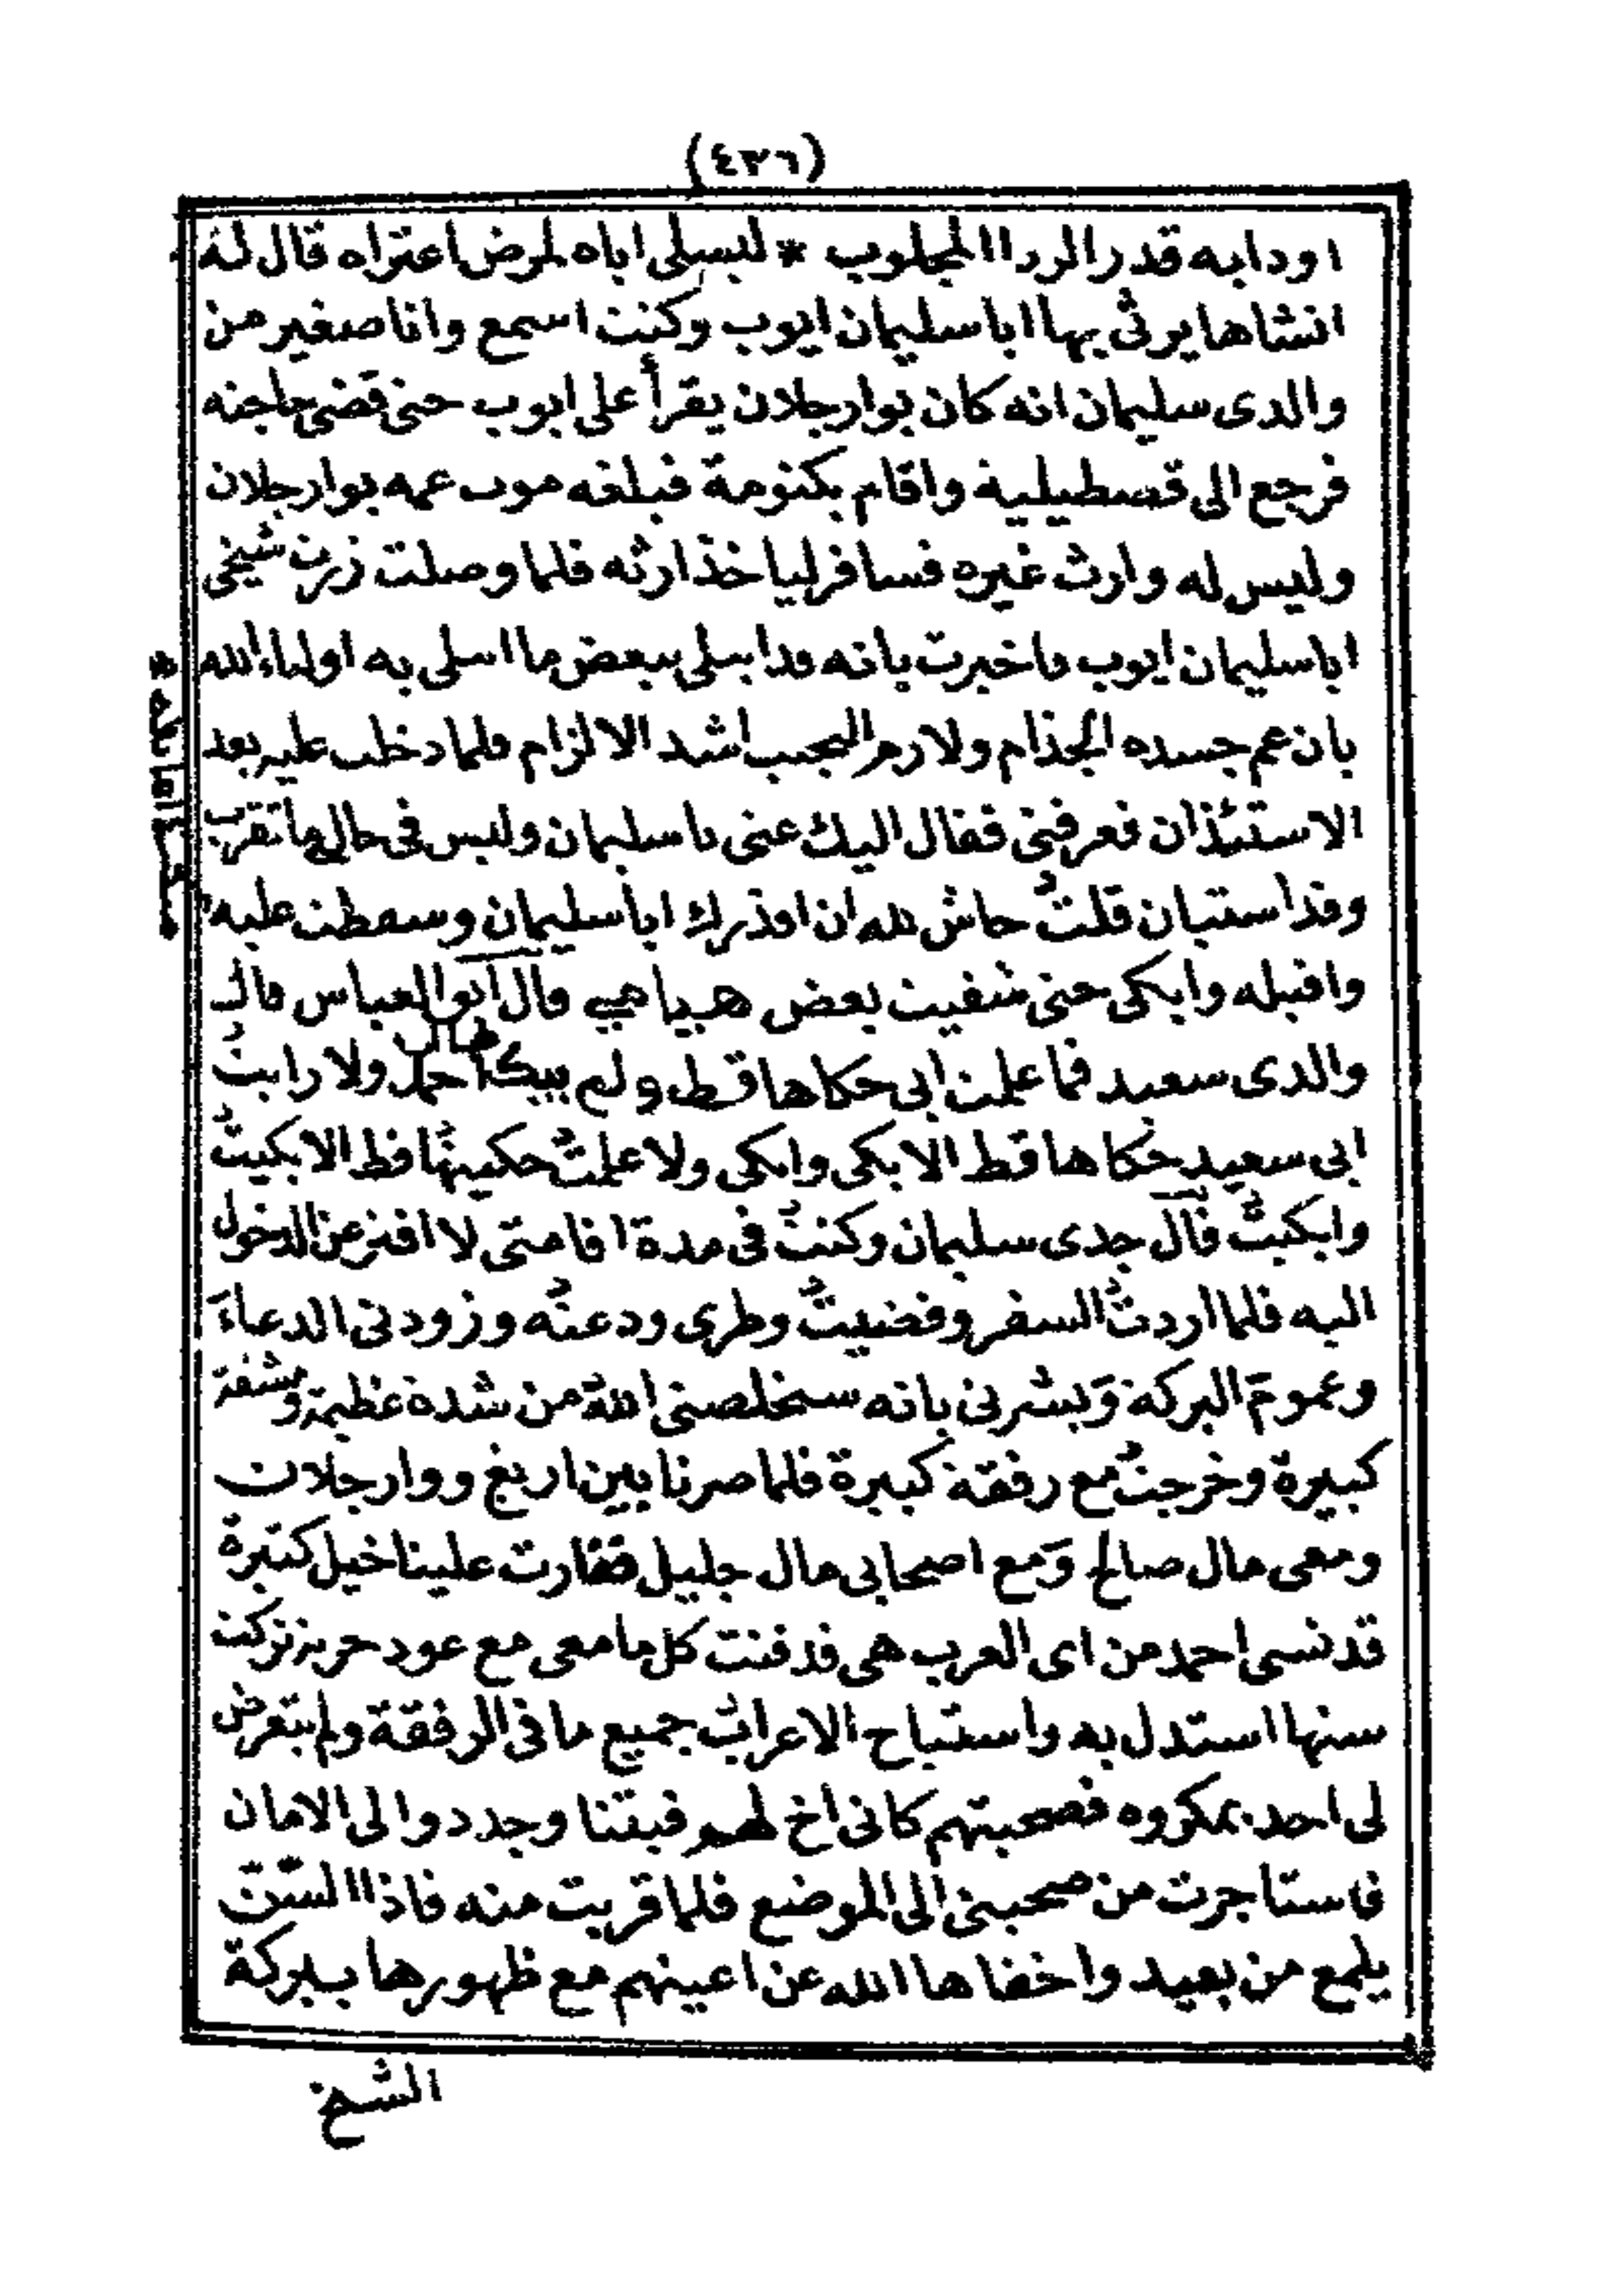 (٤٣٦)
اودابه قدر الردا المجلوب * ليسلى اباه لمرض اعتراه قال له
انشاها يرثى بها ابا سليمان ايوب وكنت اسمع وانا صغير من
والدى سليمان انه كان بوارجلان يقرأ على ايوب حتى قضى حاجته
فرجع الى قصطيلية واقام بكنومة فبلغه موت عمه بوارجلان
وليس له وارث غيره فسافر لياخذ ارثه فلما وصلت زرت شيخى
ابا سليمان ايوب فاخبرت بانه قد ابتلى ببعض ما ابتلى به اولياء الله
بان عم جسده الجذام ولازم البيت اشد الالزام فلما دخلت عليه بعد
الاستئذان فعرفنى فقال اليك عنى يا سليمان وليس فى حال ما تقرب
وقد استبان قلتُ حاش لله ان اقذرك ابا سليمان وسقطت عليه
واقبله وابكى حتى شفيت بعض هيامى قال ابو العباس قال
والدى سعيد فما علمت ابى حكاها قط ولم يبك احمد ولا رايتُ
ابى سعيد حكاها قط الا بكى وابكى ولا علمتُ حكيتها قط الا بكيتُ
وابكيتُ قال جدى سليمان وكنتُ فى مدة اقامتى لا افتر عن الدخول
اليه فلما اردتُ السفر وقضيتُ وطرى ودعته وزودنى الدعاءَ
وعموم البركة وَبشرنى بانه سيخلصنى الله من شدة عظيمة ومشقة
كبيرة وخرجتُ مع رفقة كبيرة فلما صرنا بين اريغ ووارجلان
ومعى مال صالح وَمع اصحابى مال جليل فغارت علينا خيل كثيرة
قد نسى احمد من اى العرب هى فدفنت كل ما معى مع عود حربة تركت
سنها استدل به واستباح الاعراب جميع ما فى الرفقة ولم يتعرض
لى احد بمكروه فصحبتهم كانى اخ لهم فبقنا وجددوا لى الامان
فاستاجرت من صحبنى الى الموضع فلما قربت منه فاذا السّنّ
يلمع من بعيد واخفاها الله عن اعينهم مع ظهورها ببركة
الشخ